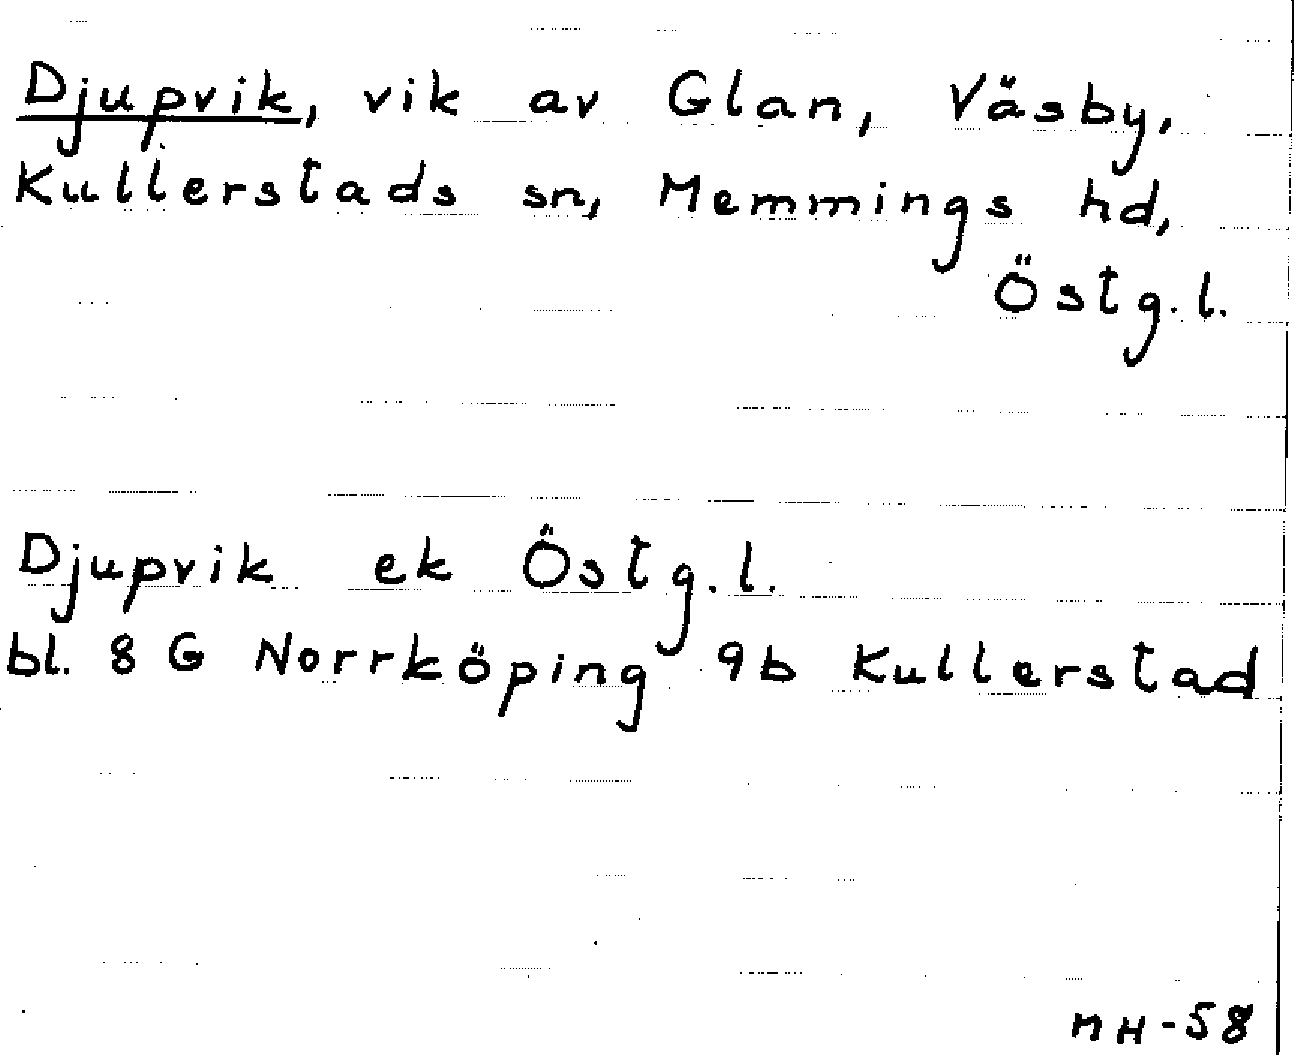 Djupvik, vik av Glan, Väsby,
Kullerstads sn, Memmings hd,
Östg.l.
Djupvik ek Östg.l.
bl. 8 G Norrköping 9b Kullerstad
MH-58